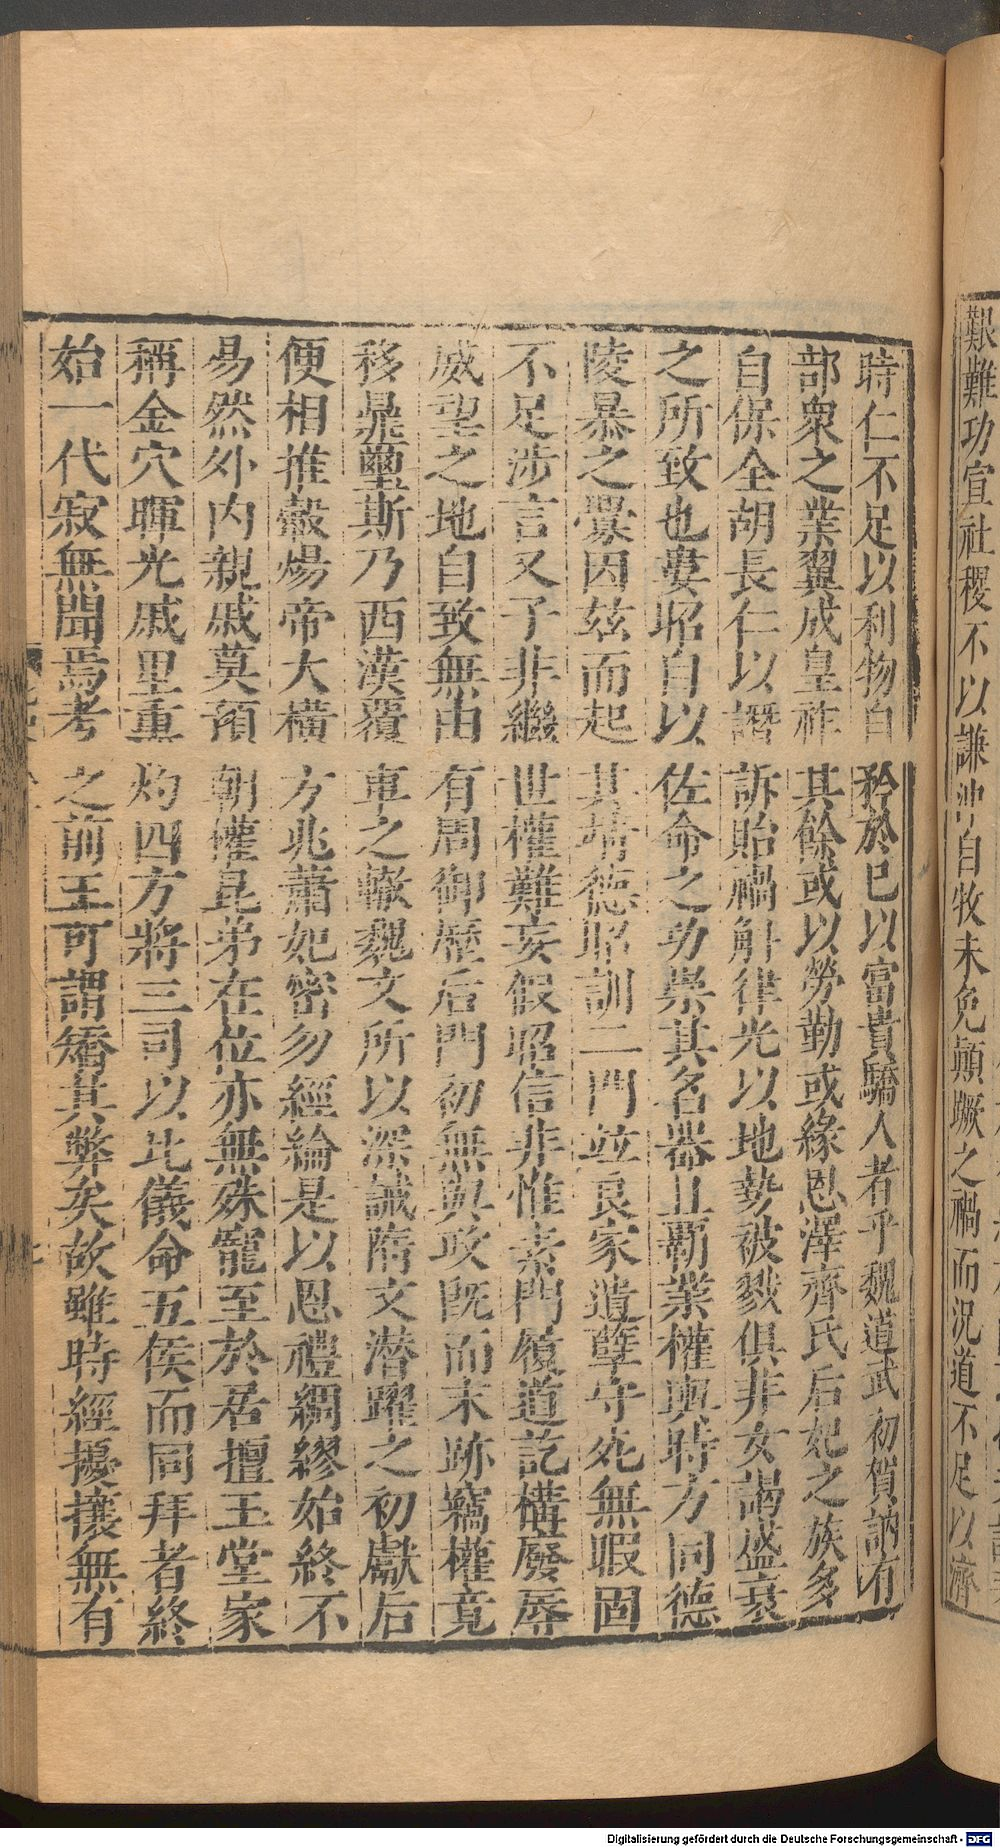 艱難功宣社稷不以謙沖自牧未免顛蹶之禍而況道不足以濟
時仁不足以利物自矜於已以富貴驕人者乎魏道武初賀訥有
部衆之業翼成皇祚其餘或以勞勤或緣恩澤齊氏后妃之族多
自保全胡長仁以譖訴貽禍斛律光以地勢被戮俱非女謁盛衰
之所致也婁昭自以佐命之功崇其名器且霸業權輿時方同德
陵暴之釁因玆而起其靖德昭訓二門竝良家遺孽守死無暇固
不足涉言又子非繼世權難妄假昭信非惟素門履道訖構廢辱
威望之地自致無由有周御歷后門初無與政既而末跡竊權竟
移鼎璽斯乃西漢覆車之轍魏文所以深誡隋文潛躍之初獻后
便相推轂煬帝大橫方兆蕭妃密勿經綸是以恩禮綢繆始終不
易然外內親戚莫預朝權昆弟在位亦無殊寵至於居擅玉堂家
稱金穴暉光戚里重灼四方將三司以比儀命五侯而同拜者終
始一代寂無聞焉考之前王可謂矯其弊矣故雖時經擾攘無有
Digitalisierung gefördert durch die Deutsche Forschungsgemeinschaft - DFG